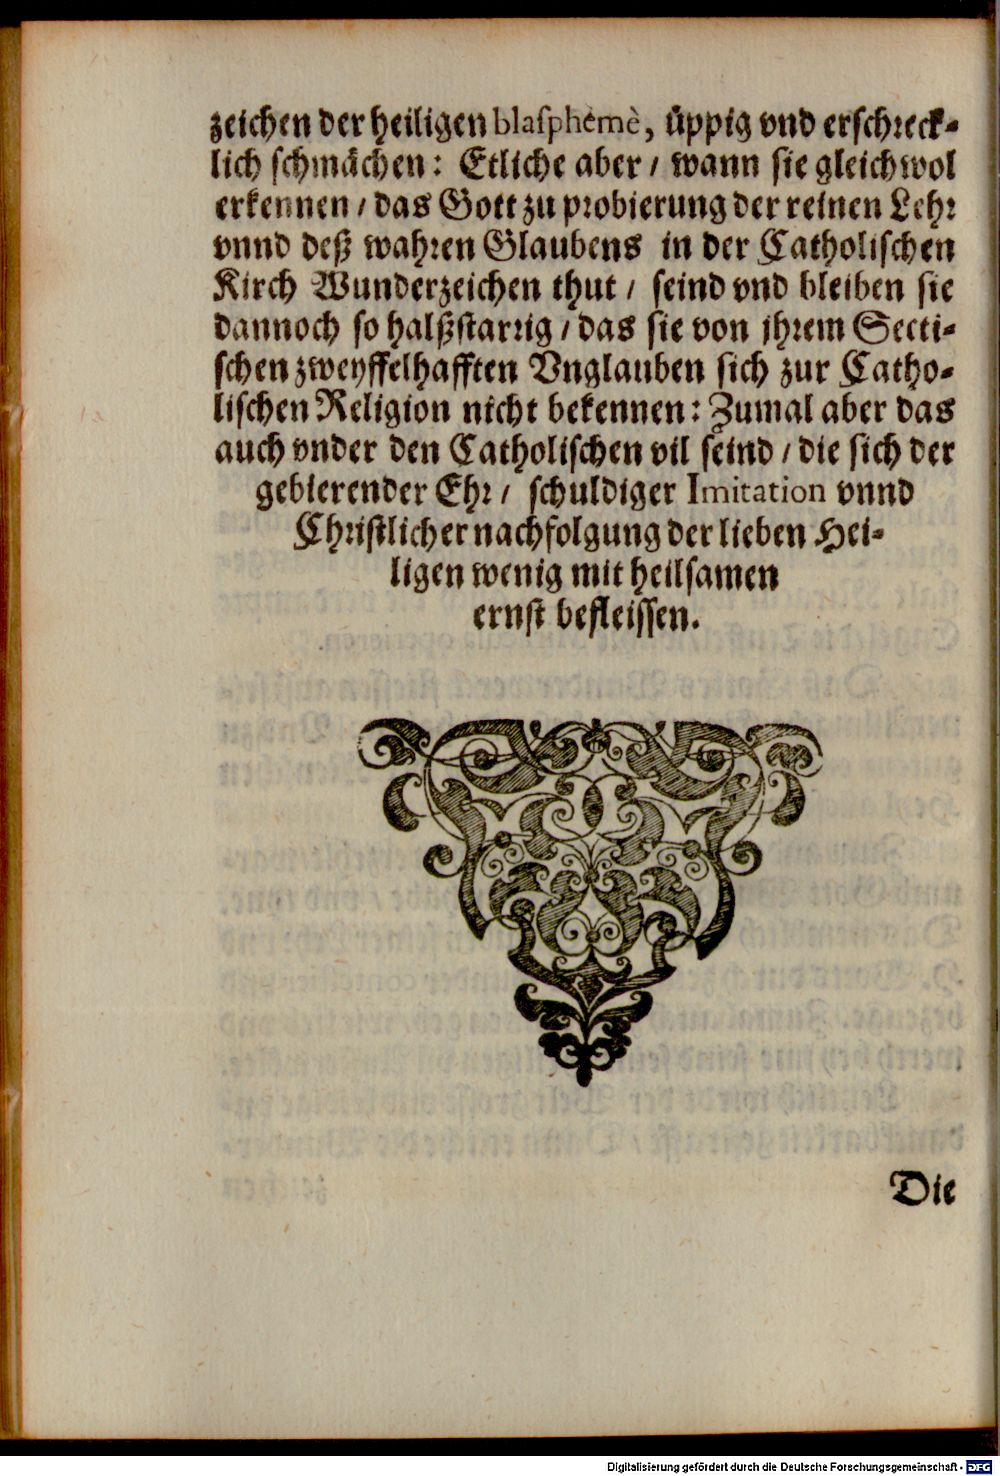 zeichen der heiligen blasphemè, üppig vnd erschreck-
lich schmächen: Etliche aber / wann sie gleichwol
erkennen / das Gott zu probierung der reinen Lehr
vnnd deß wahren Glaubens in der Catholischen
Kirch Wunderzeichen thut / seind vnd bleiben sie
dannoch so halßstarrig / das sie von jhrem Secti-
schen zweyffelhafften Vnglauben sich zur Catho-
lischen Religion nicht bekennen: Zumal aber das
auch vnder den Catholischen vil seind / die sich der
gebierender Ehr / schuldiger Imitation vnnd
Christlicher nachfolgung der lieben Hei-
ligen wenig mit heilsamen
ernst befleissen.
Die
Digitalisierung gefördert durch die Deutsche Forschungsgemeinschaft - DFG